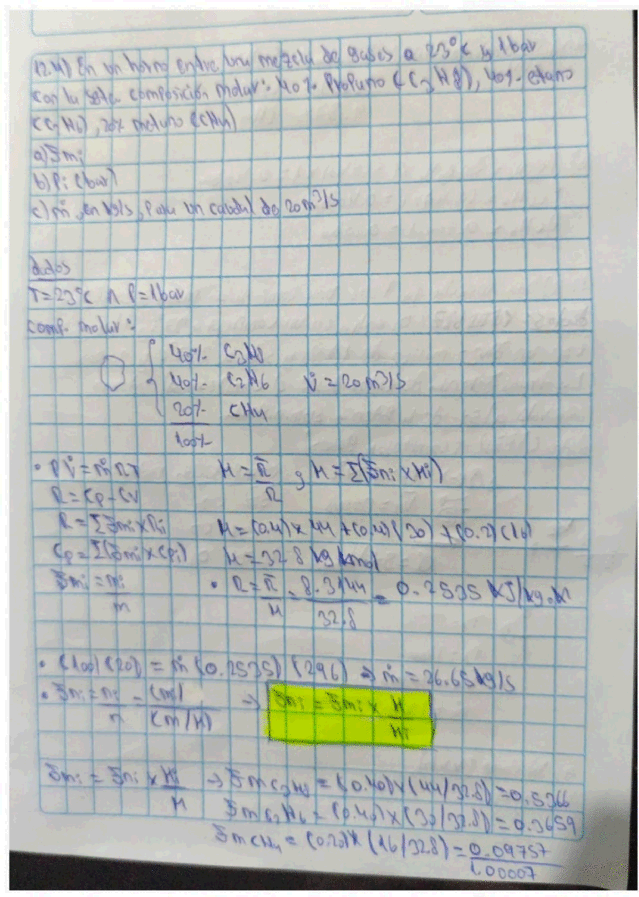 12.14) En un horno entra una mezcla de gases a 23°C y 1 bar
con la sgte. composición molar: 40% Propano (C3H8), 40% etano
(C2H6), 20% metano (CH4)
a) ξmi
b) Pi (bar)
c) ṁ, en kg/s, para un caudal de 20 m³/s
datos
T = 23°C ∧ P = 1 bar
comp. molar:
40% C3H8
40% C2H6 V̇ = 20 m³/s
20% CH4
100%
• PV̇ = ṁRT M = R̄/R , M = Σ(ξni × Mi)
R = Cp - Cv
R = Σ ξmi × Ri M = (0.4) × 44 + (0.4)(30) + (0.2)(16)
Cp = Σ(ξmi × Cpi) M = 32.8 kg/kmol
ξmi = mi/m • R = R̄/M = 8.3144/32.8 = 0.2535 kJ/kg.K
• (100)(20) = ṁ (0.2535)(296) ⇒ ṁ = 26.65 kg/s
• ξni = ni/n = (mi/)/(m/M) → ξni = ξmi × M/Mi
ξmi = ξni × Mi/M → ξmC3H8 = (0.40) × (44/32.8) = 0.5366
ξmC2H6 = (0.40) × (30/32.8) = 0.3659
ξmCH4 = (0.20) × (16/32.8) = 0.09757
1.00007